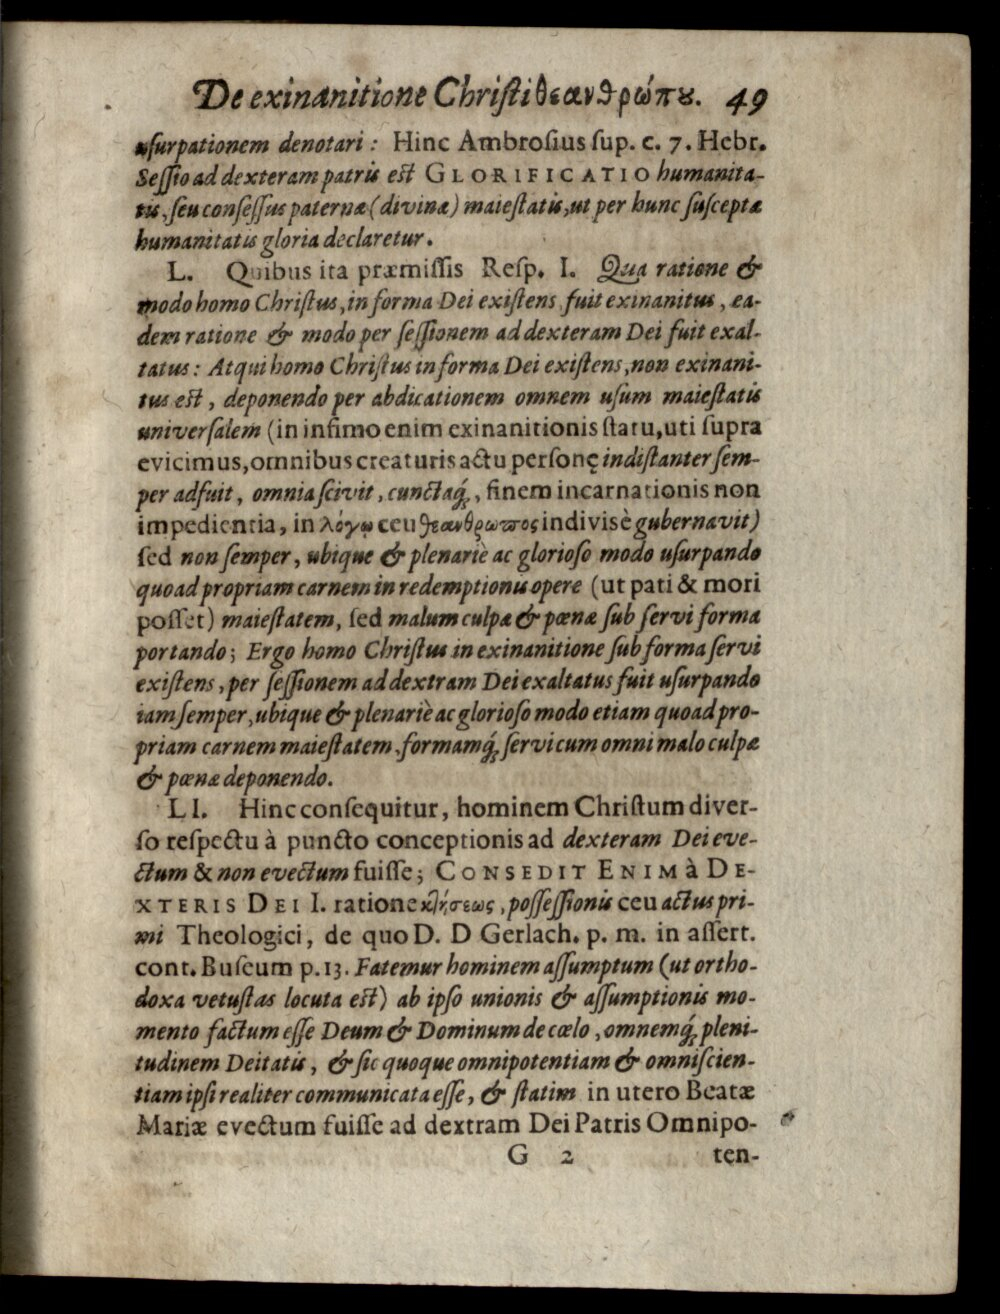 De exinanitione Christi θεανθρώπȣ. 49
uſurpationem denotari: Hinc Ambroſius ſup. c. 7. Hebr.
Seſſio ad dexteram patris eſt GLORIFICATIO humanita-
tis, ſeu conſeſſus paternæ (divinæ) maieſtatis, ut per hunc ſuſceptæ
humanitatis gloria declaretur.
L. Quibus ita præmiſſis Reſp. I. Qua ratione &
modo homo Chriſtus, in forma Dei exiſtens fuit exinanitus, ea-
dem ratione & modo per ſeſſionem ad dexteram Dei fuit exal-
tatus: Atqui homo Chriſtus in forma Dei exiſtens, non exinani-
tus eſt, deponendo per abdicationem omnem uſum maieſtatis
univerſalem (in infimo enim exinanitionis ſtatu, uti ſupra
evicimus, omnibus creaturis actu perſonę indiſtanter ſem-
per adfuit, omnia ſcivit, cunctaq́;, finem incarnationis non
impedientia, in λόγῳ ceu θεανθρωπος indivisè gubernavit)
ſed non ſemper, ubique & plenariè ac glorioſo modo uſurpando
quoad propriam carnem in redemptionis opere (ut pati & mori
poſſet) maieſtatem, ſed malum culpæ & pœnæ ſub ſervi forma
portando; Ergo homo Chriſtus in exinanitione ſub forma ſervi
exiſtens, per ſeſſionem ad dextram Dei exaltatus fuit uſurpando
iam ſemper, ubique & plenariè ac glorioſo modo etiam quoad pro-
priam carnem maieſtatem, formamq́; ſervi cum omni malo culpæ
& pœnæ deponendo.
LI. Hinc conſequitur, hominem Chriſtum diver-
ſo reſpectu à puncto conceptionis ad dexteram Dei eve-
ctum & non evectum fuiſſe; CONSEDIT ENIM à DE-
XTERIS DEI I. ratione κλήσεως, poſſeſſionis ceu actus pri-
mi Theologici, de quo D. D Gerlach. p. m. in aſſert.
cont. Buſeum p. 13. Fatemur hominem aſſumptum (ut ortho-
doxa vetuſtas locuta eſt) ab ipſo unionis & aſſumptionis mo-
mento factum eſſe Deum & Dominum de cœlo, omnemq́; pleni-
tudinem Deitatis, & ſic quoque omnipotentiam & omniſcien-
tiam ipſi realiter communicata eſſe, & ſtatim in utero Beatæ
Mariæ evectum fuiſſe ad dextram Dei Patris Omnipo-
G 2 ten-